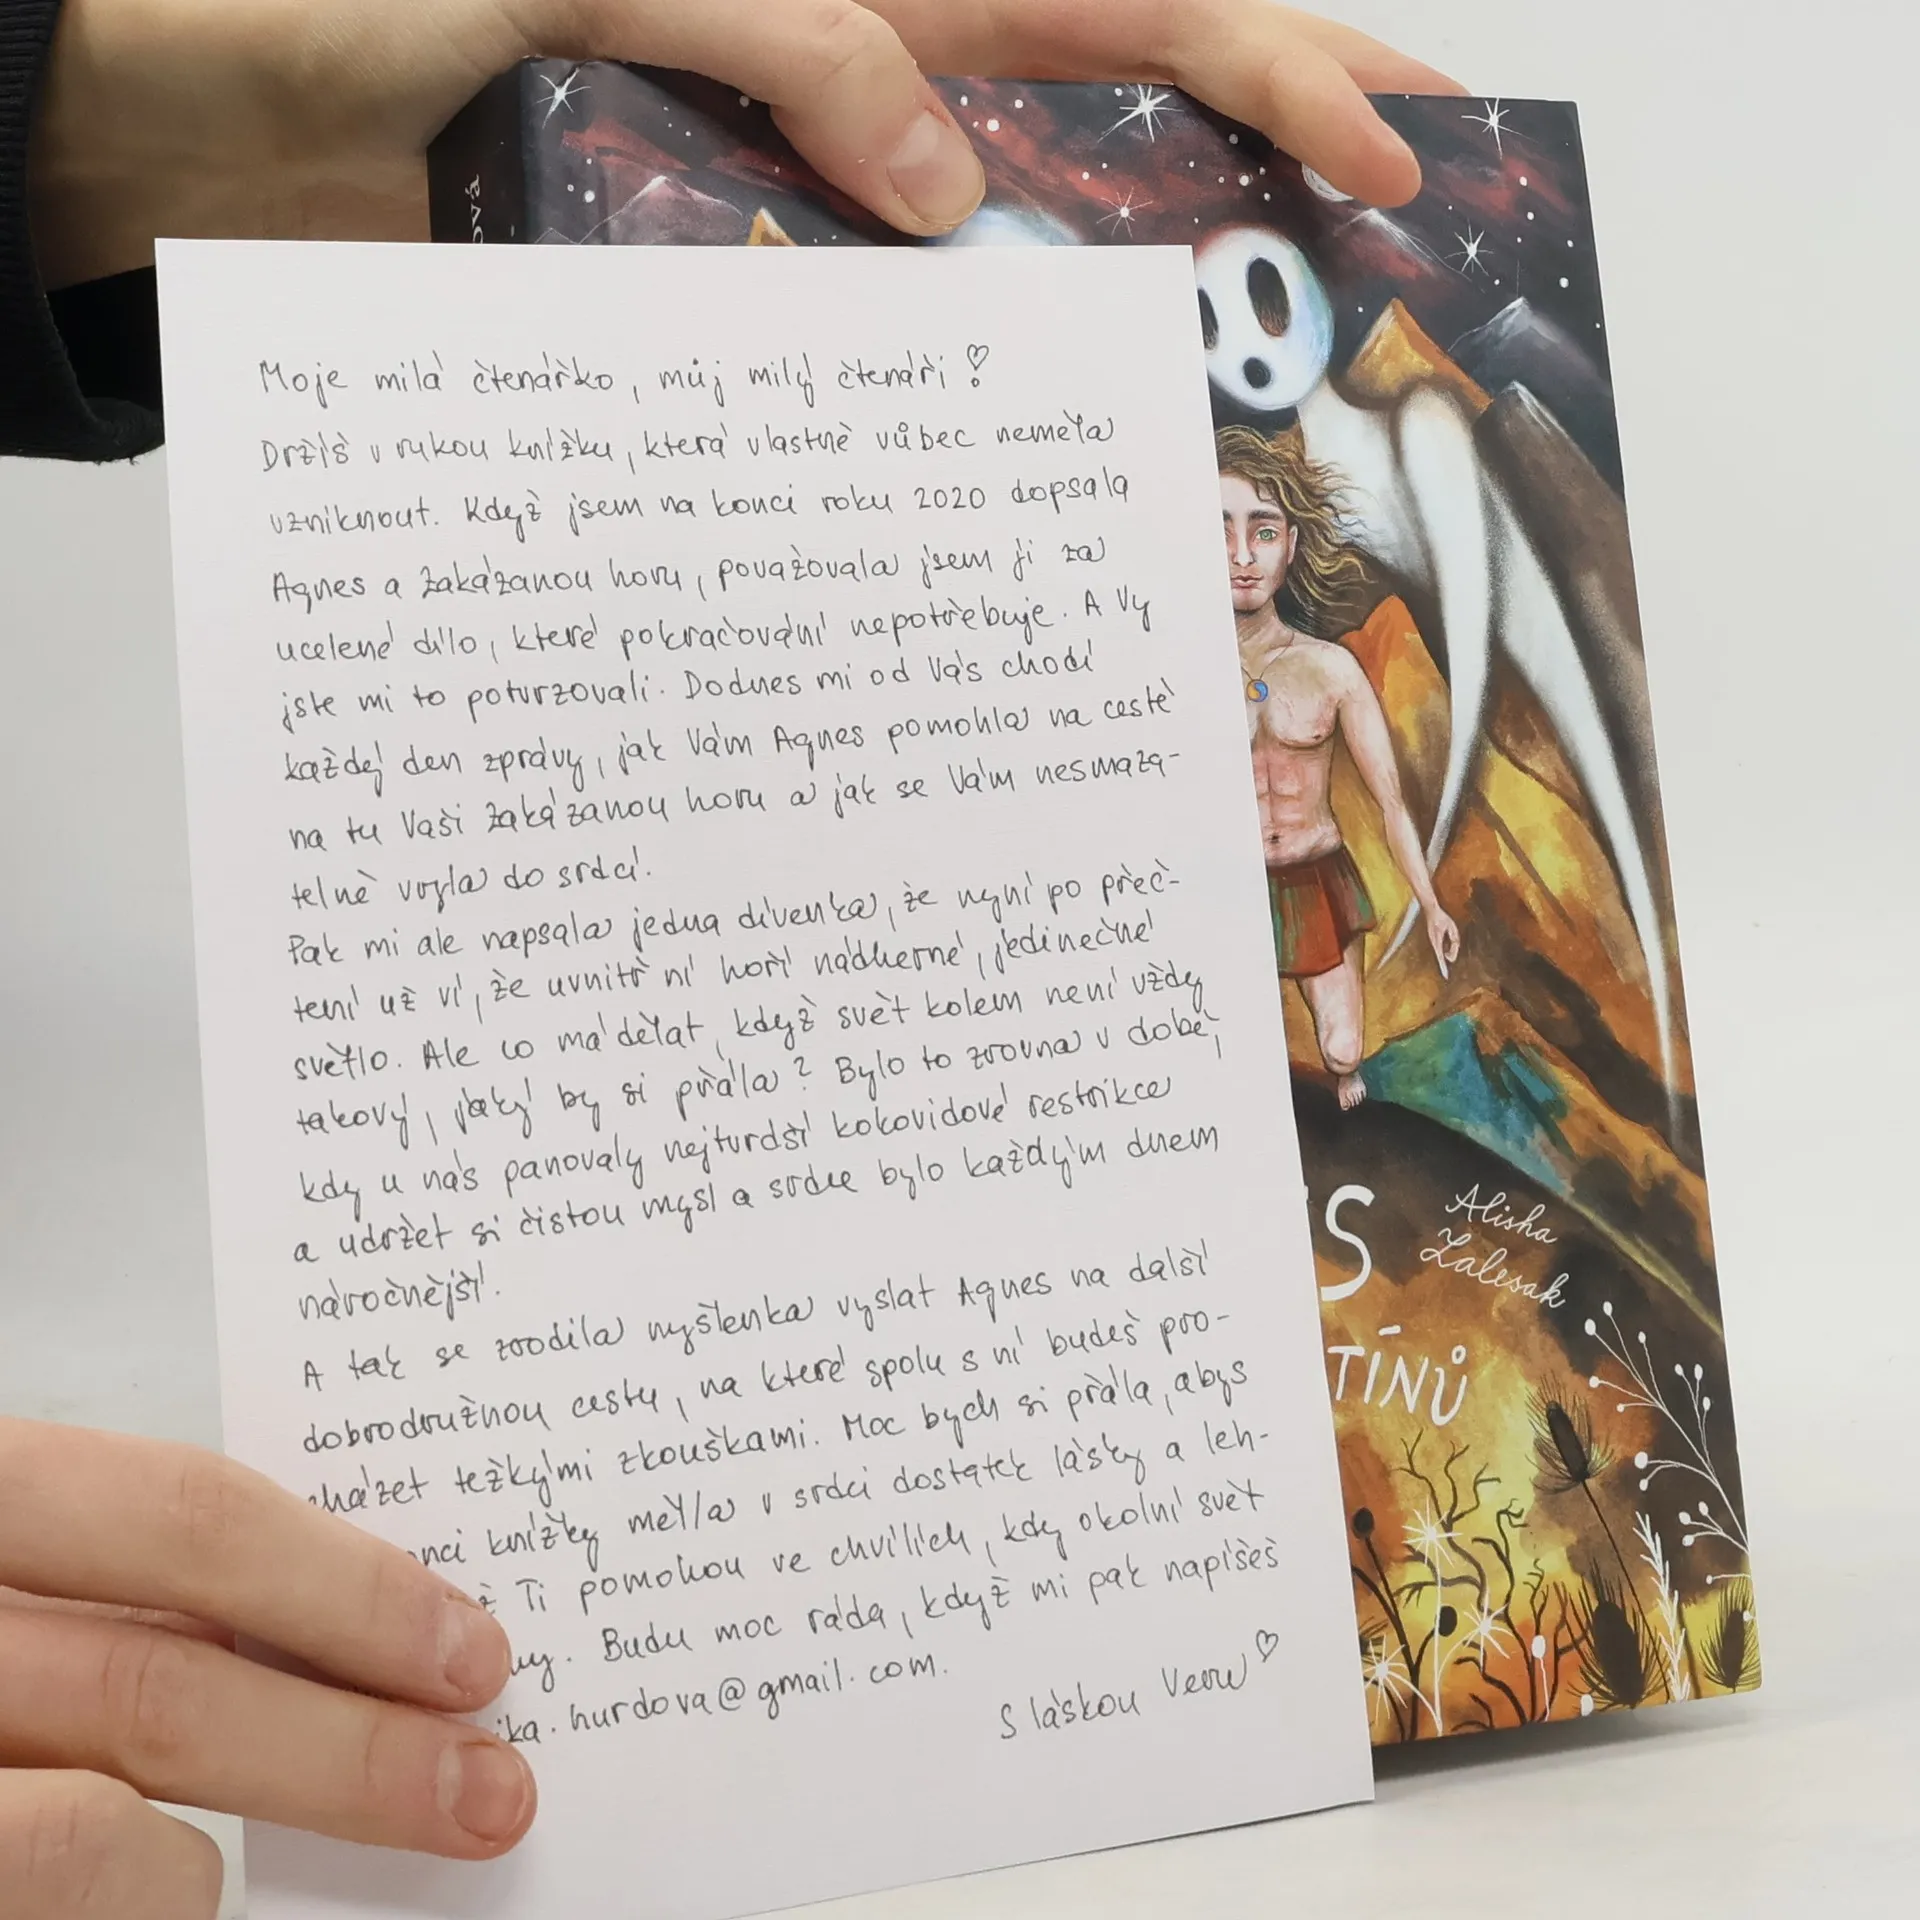 Moje milá čtenářko, můj milý čtenáři!
Držíš v rukou knížku, která vlastně vůbec neměla
vzniknout. Když jsem na konci roku 2020 dopsala
Agnes a Zakázanou horu, považovala jsem ji za
ucelené dílo, které pokračování nepotřebuje. A Vy
jste mi to potvrzovali. Dodnes mi od Vás chodí
každý den zprávy, jak Vám Agnes pomohla na cestě
na tu Vaši Zakázanou horu a jak se Vám nesmaza-
telně vryla do srdcí.
Pak mi ale napsala jedna dívenka, že nyní po přeč-
tení už ví, že uvnitř ní hoří nádherné, jedinečné
světlo. Ale co má dělat, když svět kolem není vždy
takový, jaký by si přála? Bylo to zrovna v době,
kdy u nás panovaly nejtvrdší kokovidové restrikce
a udržet si čistou mysl a srdce bylo každým dnem
náročnější.
A tak se zrodila myšlenka vyslat Agnes na další
dobrodružnou cestu, na které spolu s ní budeš pro-
cházet těžkými zkouškami. Moc bych si přála, abys
knížky měl/a v srdci dostatek lásky a leh-
Ti pomohou ve chvílích, kdy okolní svět
Budu moc ráda, když mi pak napíšeš
ika.hurdova@gmail.com.
S láskou Veru
S
Alisha
Zalesak
TÍNŮ